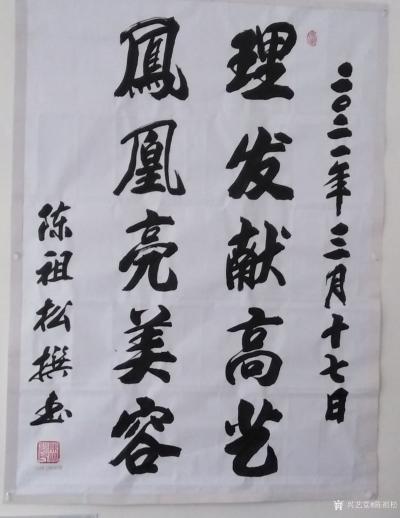 二〇二一年三月十七日
理发献高艺
凤凰亮美容
陈祖松撰书
兴艺堂®陈祖松